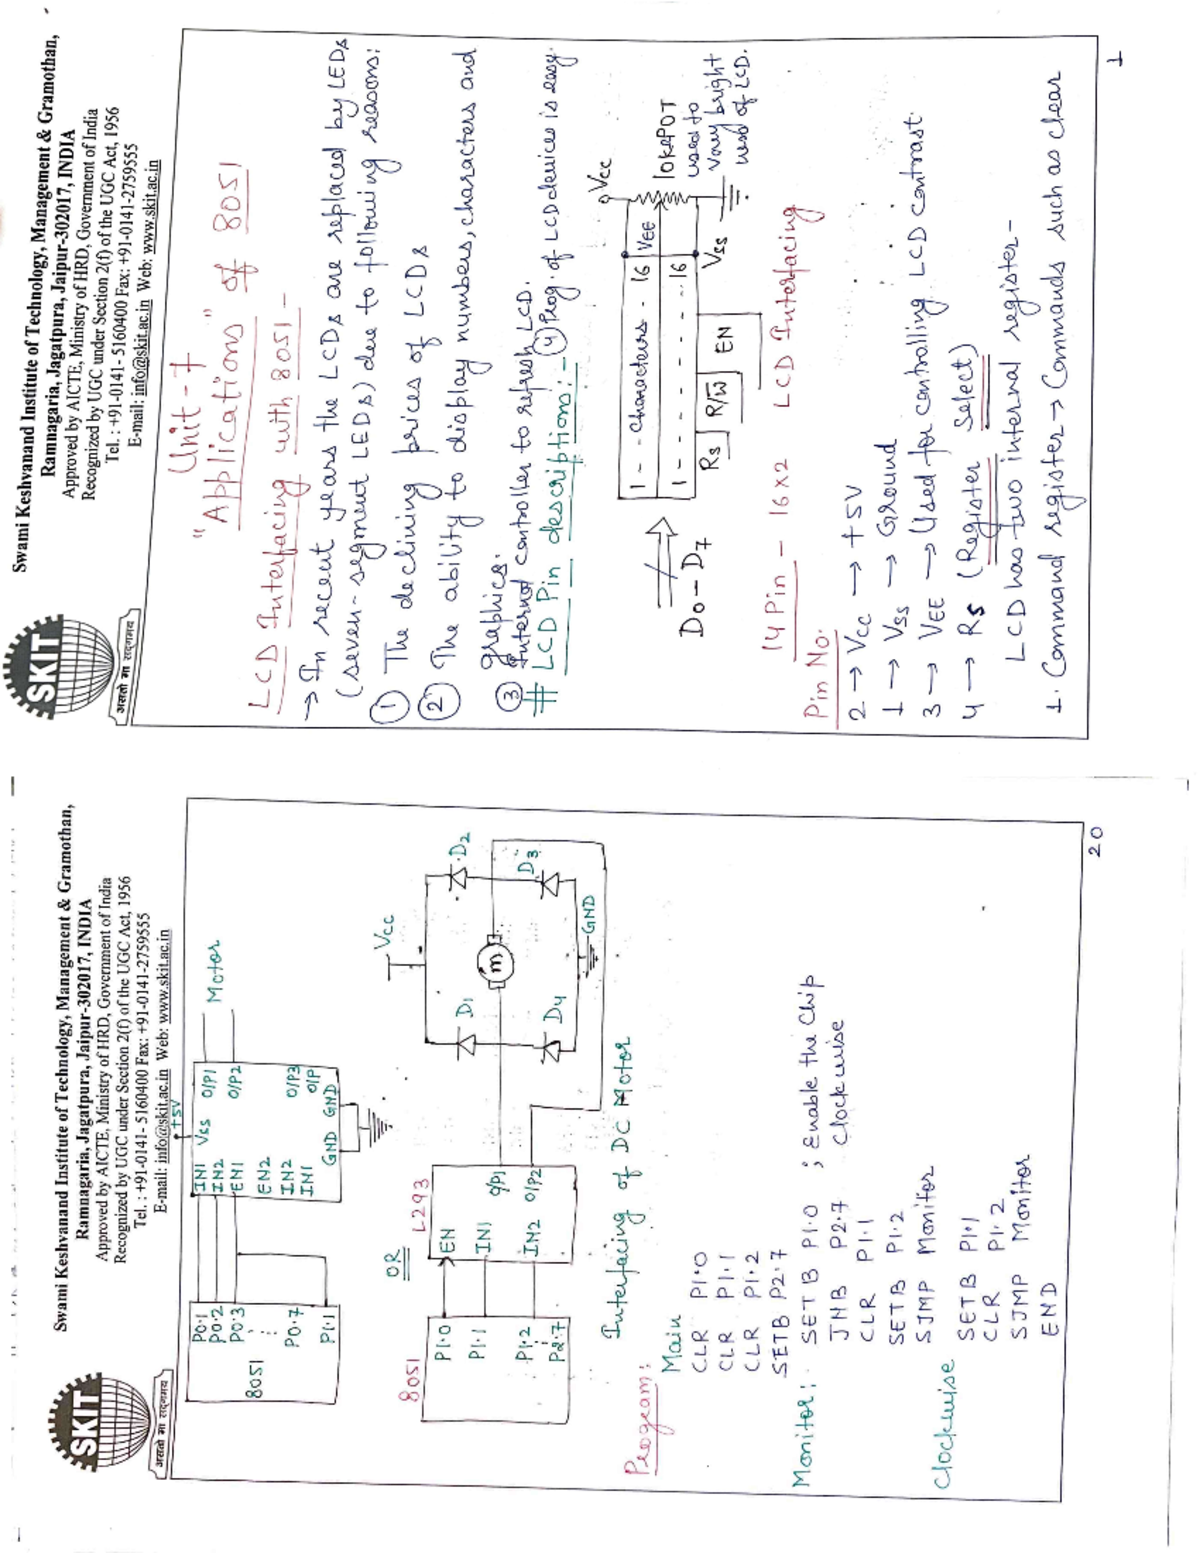 Swami Keshvanand Institute of Technology, Management & Gramothan,
Ramnagaria, Jagatpura, Jaipur-302017, INDIA
Approved by AICTE, Ministry of HRD, Government of India
Recognized by UGC under Section 2(f) of the UGC Act, 1956
Tel. : +91-0141- 5160400 Fax: +91-0141-2759555
E-mail: info@skit.ac.in Web: www.skit.ac.in
SKIT
असतो मा सद्गमय
Unit-7
"Applications" of 8051
LCD Interfacing with 8051-
→ In recent years the LCDs are replaced by LEDs
(seven-segment LEDs) due to following reasons:
① The declining prices of LCDs
② The ability to display numbers, characters and
graphics.
③ Internal controller to refresh LCD.
④ Prog. of LCD devices is easy.
# LCD Pin descriptions:-
Vcc
1 - - Characters - - 16
VEE
1 - - - - - - - 16
10k POT
used to
Vary bright
ness of LCD.
Vss
Rs R/W EN
D0-D7
14 Pin - 16x2 LCD Interfacing
Pin No.
2 → Vcc → +5V
1 → Vss → Ground
3 → VEE → Used for controlling LCD contrast.
4 → Rs (Register Select)
LCD has two internal register-
1. Command register → Commands such as clear
1
Swami Keshvanand Institute of Technology, Management & Gramothan,
Ramnagaria, Jagatpura, Jaipur-302017, INDIA
Approved by AICTE, Ministry of HRD, Government of India
Recognized by UGC under Section 2(f) of the UGC Act, 1956
Tel. : +91-0141- 5160400 Fax: +91-0141-2759555
E-mail: info@skit.ac.in Web: www.skit.ac.in
SKIT
असतो मा सद्गमय
+5V
P0.1
P0.2
P0.3
P0.7
P1.1
8051
IN1
IN2
EN1
EN2
IN2
IN1
Vss
O/P1
O/P2
O/P3
O/P
GND GND
Motor
OR
8051
P1.0
P1.1
P1.2
P2.7
L293
EN
IN1
IN2
O/P1
O/P2
Vcc
D1
D2
m
D4
D3
GND
Interfacing of DC Motor
Program:
Main
CLR P1.0
CLR P1.1
CLR P1.2
SETB P2.7
Monitor: SETB P1.0 ; Enable the Chip
JNB P2.7 Clockwise
CLR P1.1
SETB P1.2
SJMP Monitor
Clockwise
SETB P1.1
CLR P1.2
SJMP Monitor
END
20